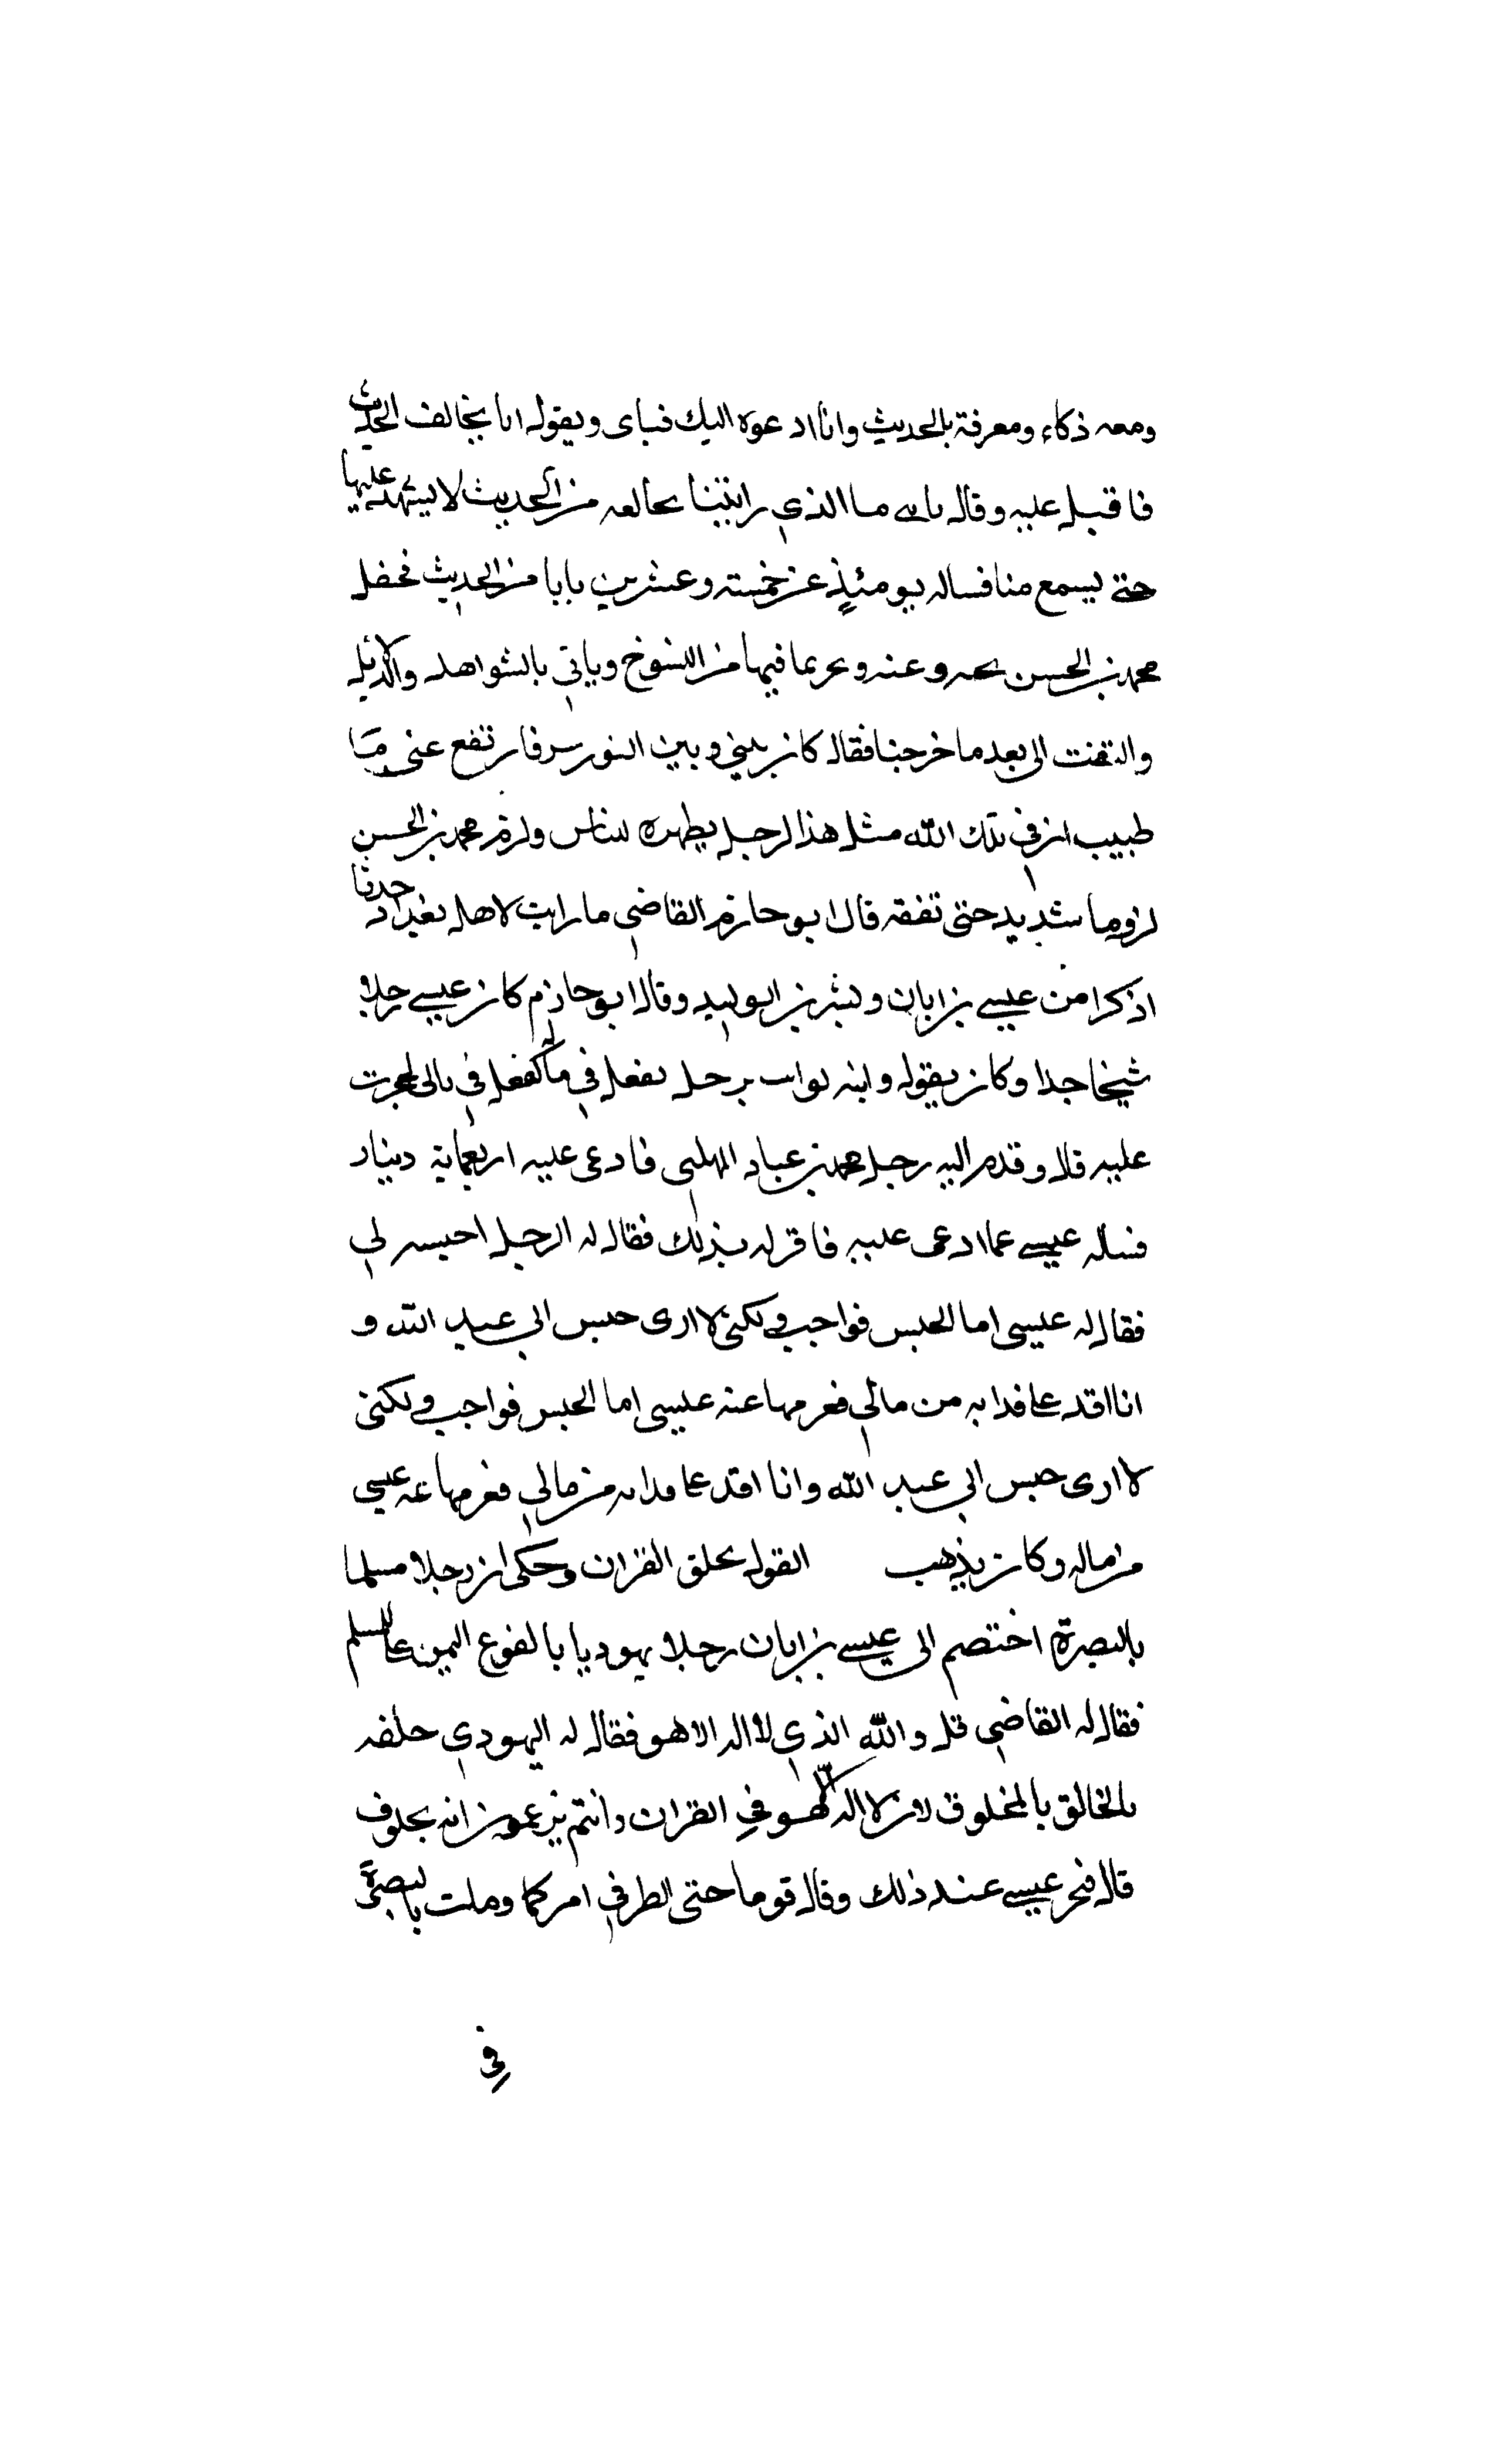 ومعه ذكاء ومعرفة بالحديث وانا ادعوه اليك فياى ويقول انا نخالف الحديث
فاقبل عليه وقال يابنى ما الذي رايتنا نخالفه من الحديث لا تشهد عليها
حتى يسمع منا فساله يومئذ عن خمسة وعشرين بابا من الحديث فجعل
محمد بن الحسن يجيبه عنه ويخبر بما فيها من المنسوخ وياتي بالشواهد والدلايل
والتفت الى بعد ما خرجنا فقال كان بيني وبين النور ستر فارتفع عنى ما
طبيب ان في ملك الله مثل هذا الرجل يظهره للناس ولزم محمد بن الحسن
لزوما شديد حتى تفقه قال ابو حازم القاضي ما رايت لاهل بغداد حدثا
اذكرا من عيسى بن ابان وبشر بن الوليد وقال ابو حازم كان عيسى رجلا
شيخا جدا وكان يقول وابنه لو اتيت برجل يفعل في ماله كفعلي في مالى لحجرت
عليه قال وقدم اليه رجل محمد بن عباد المهلبى فادعى عليه اربعماية دينار
فساله عيسى عما ادعى عليه فاقر له بذلك فقال له الرجل احبسه لي
فقال له عيسى اما الحبس فواجب ولكنى لا ارى حبس ابي عبد الله و
انا اقدر على فدايه من مالي فغرمها عنه عيسى اما الحبس فواجب ولكنى
لا ارى حبس ابي عبد الله وانا اقدر على فدايه من مالي فغرمها عنه عيسى
من ماله وكان يذهب القول بخلق القران وحكى ان رجلا مسلما
بالبصرة اختصم الى عيسى بن ابان رجلا يهوديا بالفوع اليمين على المسلم
فقال له القاضي قل والله الذي لا اله الا هو فقال له اليهودي حلفه
بالخالق بالمخلوق لان لا اله الا هو في القران وانتم تزعمون انه مخلوق
قال فتحير عيسى عند ذلك وقال قوما حتى انظر في امركما ومات بالبصرة
في